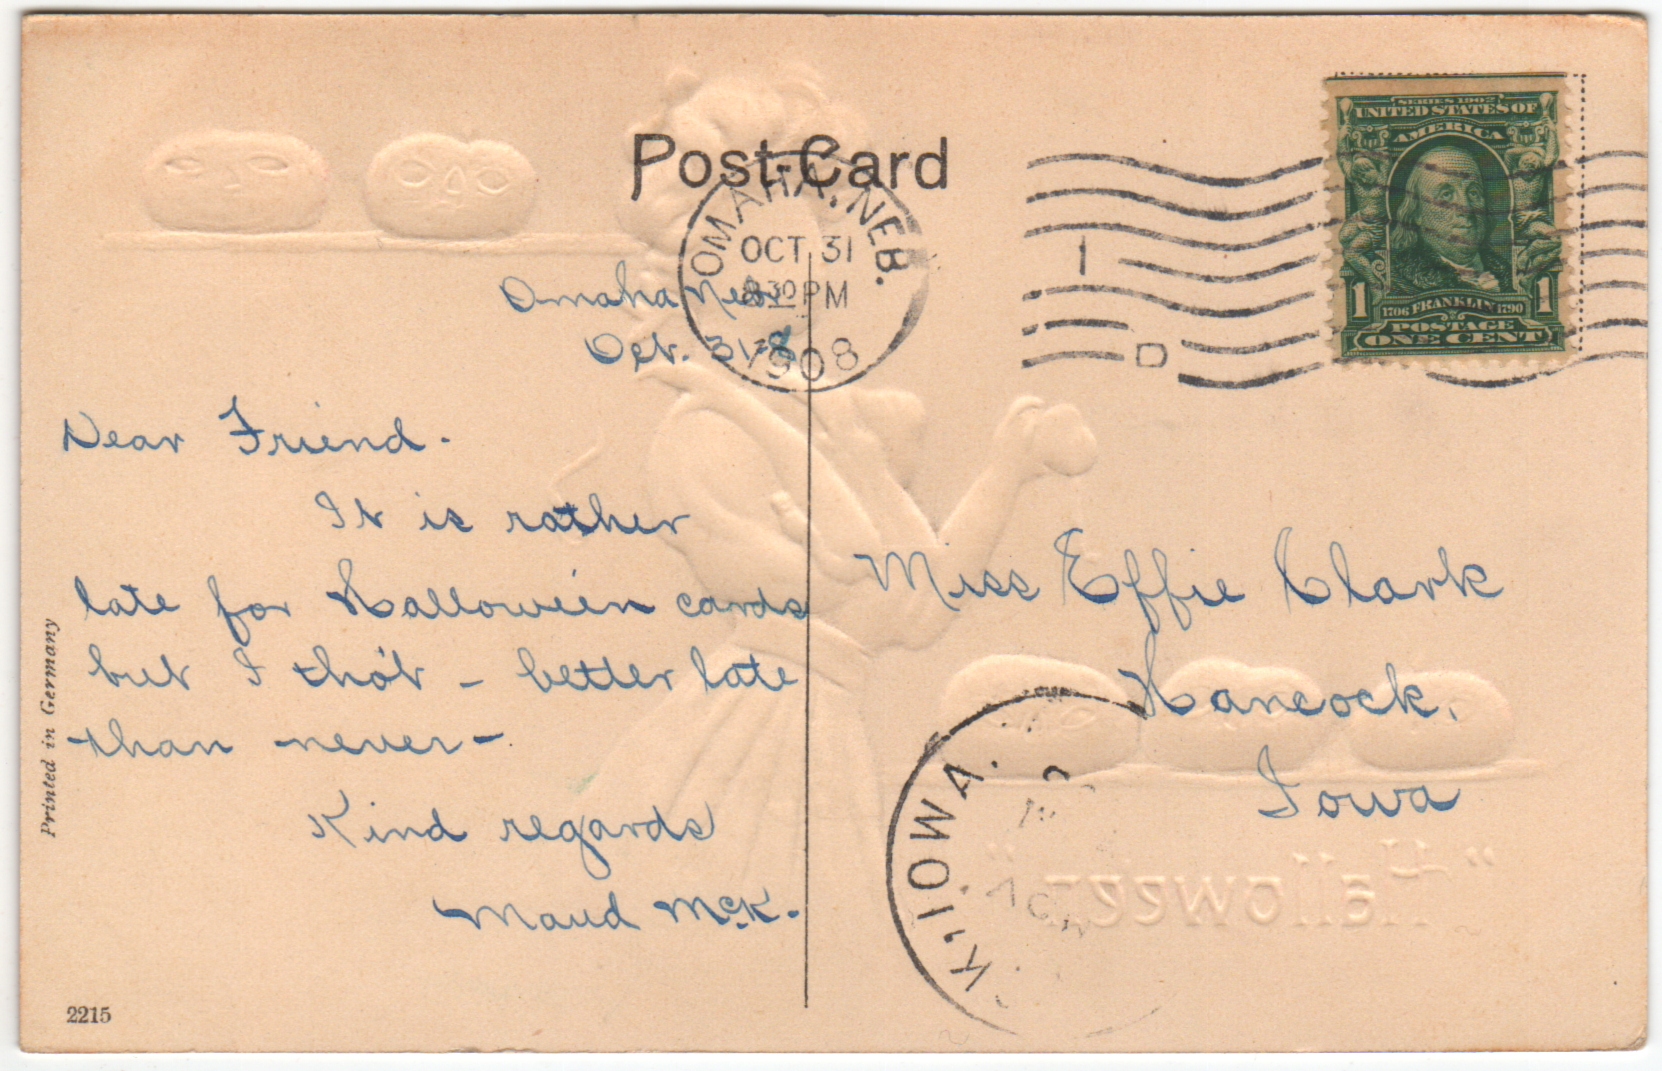 Post-Card
OMAHA, NEB.
OCT 31
8 30 PM
1908
1
D
SERIES 1902
UNITED STATES OF
AMERICA
1 1706 FRANKLIN 1790 1
POSTAGE
ONE CENT
Omaha Neb.
Oct. 31-8
Dear Friend.
It is rather
late for Halloween cards
but I tho't - better late
than never-
Kind regards
Maud McK.
Miss Effie Clark
Hancock,
Iowa
K, IOWA.
NOV
"Hallowe'en"
Printed in Germany
2215